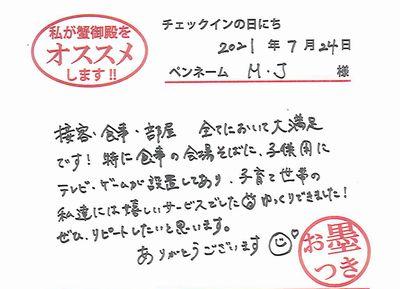 私が蟹御殿を
オススメ
します!!
チェックインの日にち
2021年7月24日
ペンネーム M・J 様
接客・食事・部屋 全てにおいて大満足
です! 特に食事の会場そばに、子供用に
テレビ・ゲームが設置してあり、子育て世帯の
私達には嬉しいサービスでした ゆっくりできました!
ぜひ、リピートしたいと思います。
ありがとうございます
お墨
つき